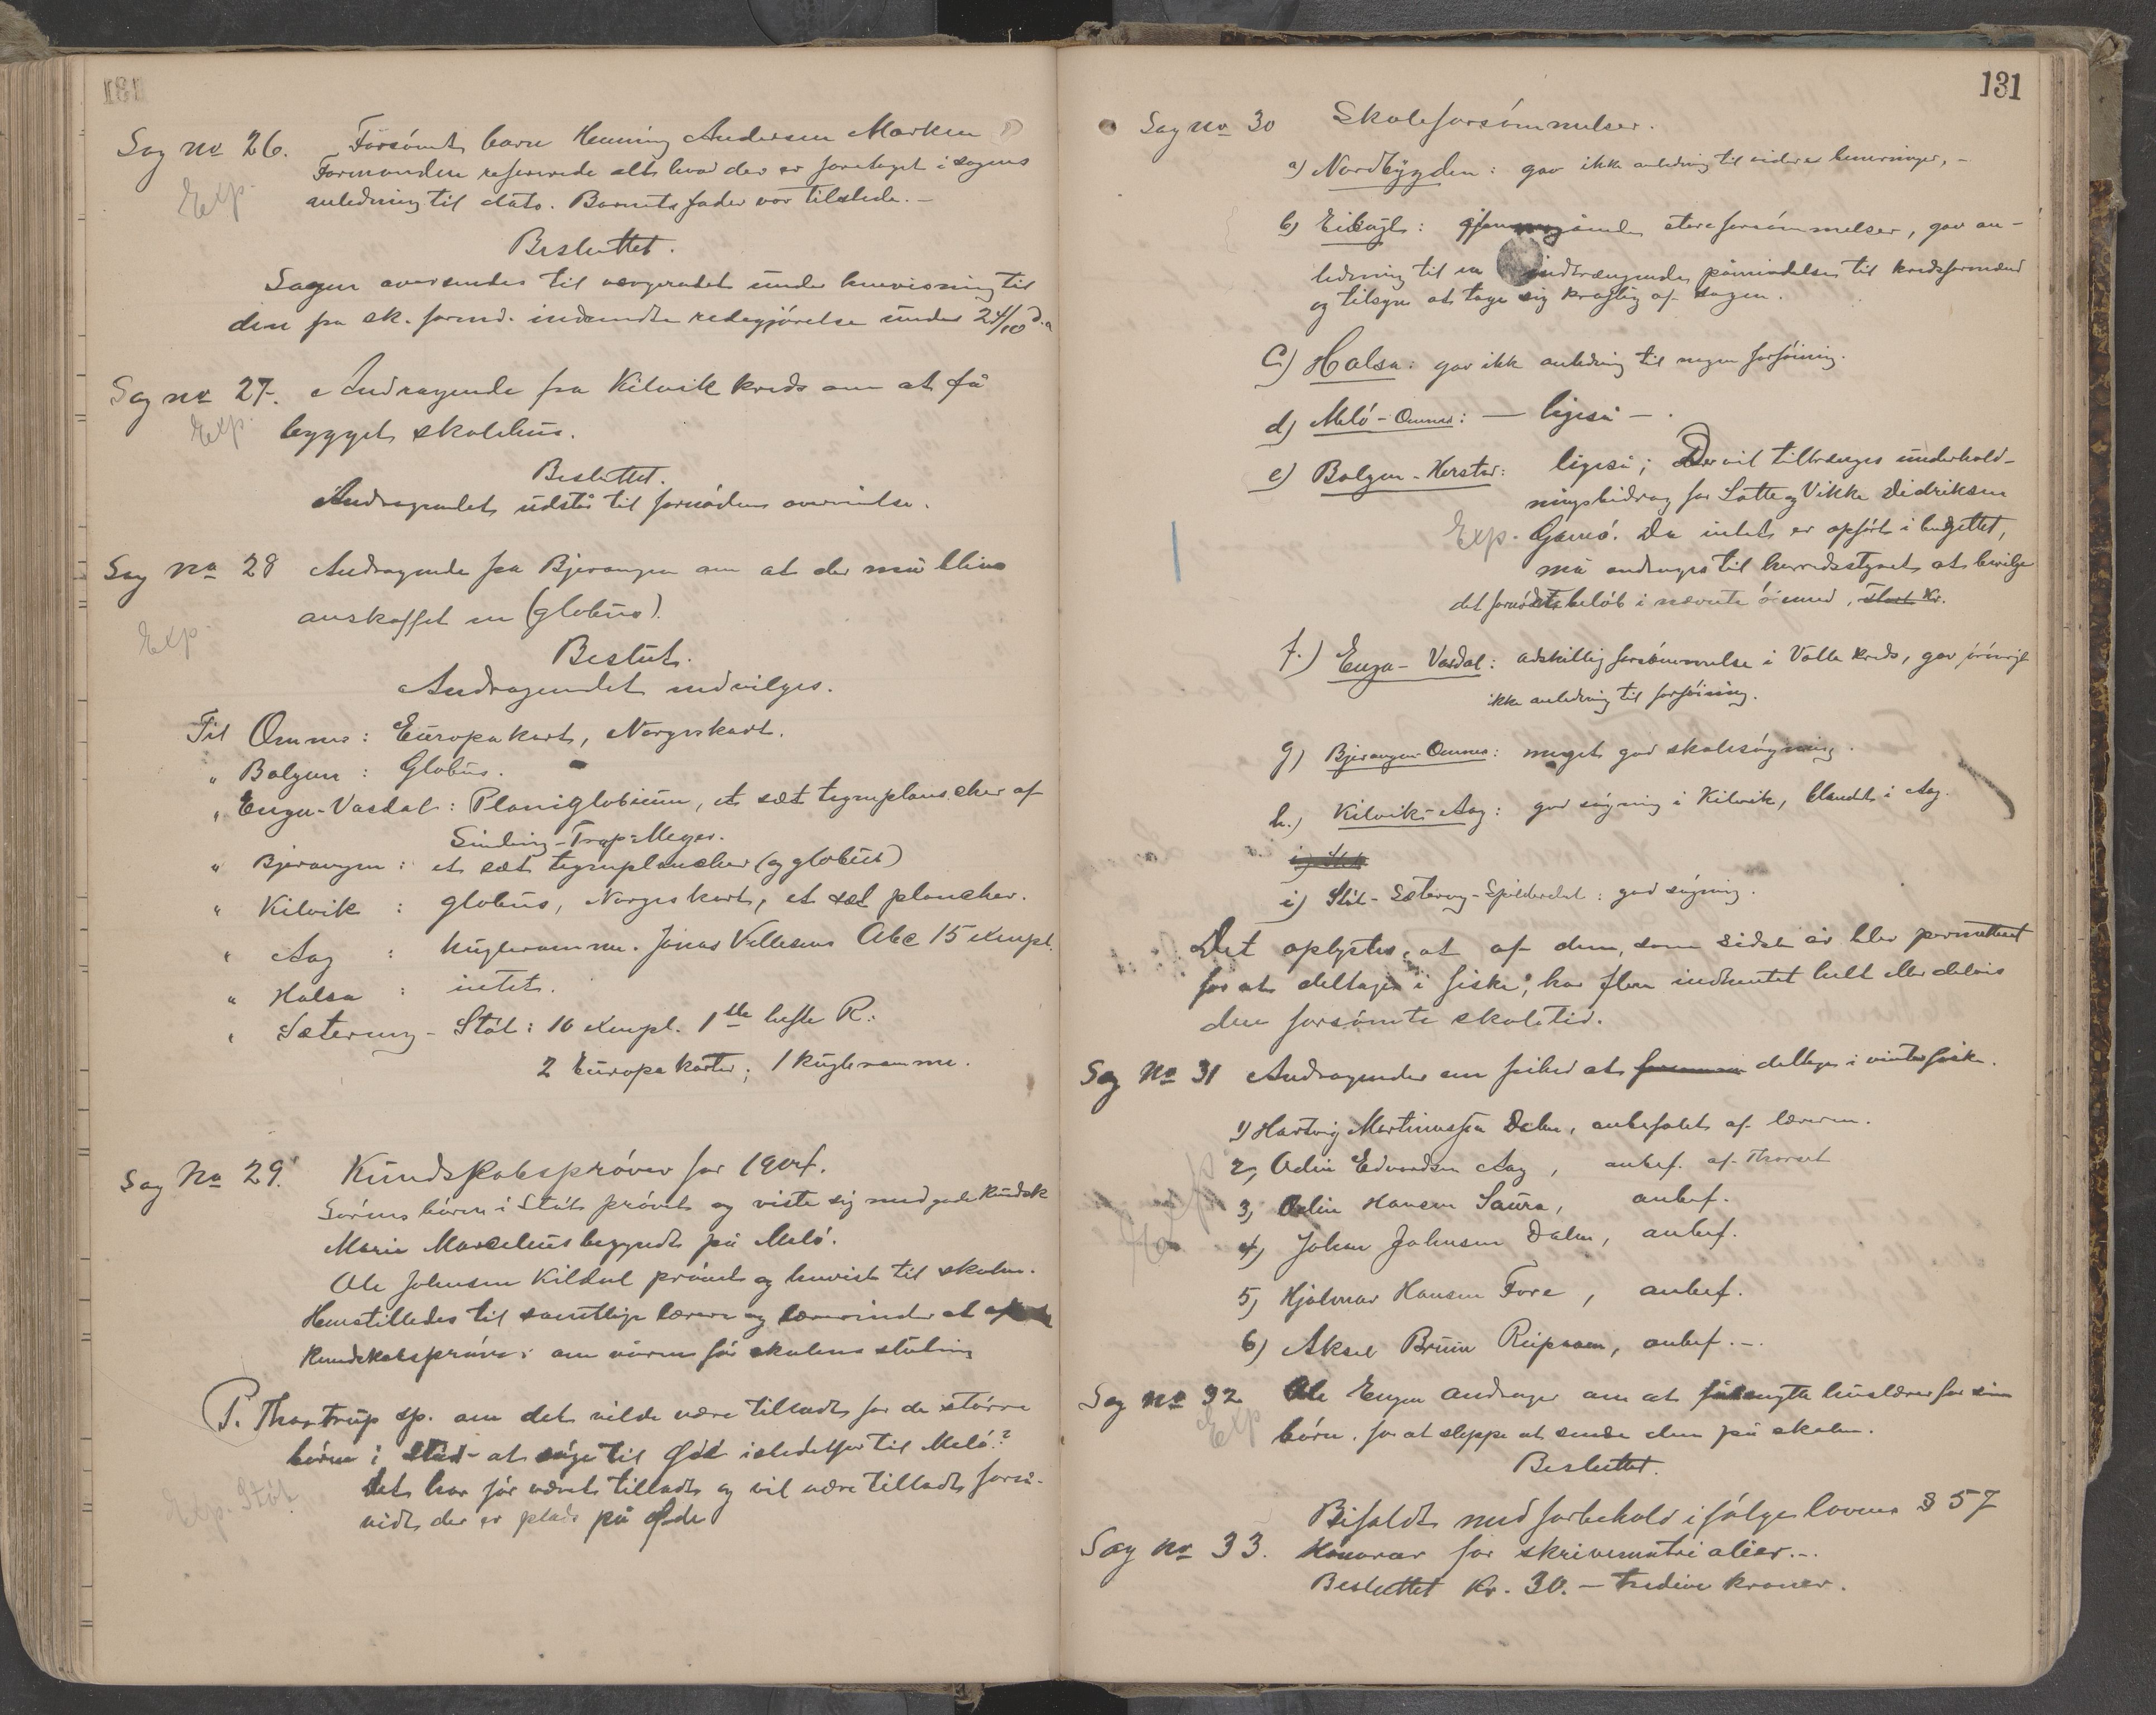 Sag no 26. Forsømt barn Henning Andersen Marken
Exp. Formanden refererede alt hvad der er foretaget i sagens
anledning til dato. Barnets fader var tilstede. –
Besluttet.
Sagen oversendes til værgerådet under henvisning til
den fra sk. formd. indsendte redegjørelse under 24/10 d.a
Sag no 27. Andragende fra Kilvik kreds om at få
Exp. bygget skolehus.
Besluttet.
Andragendet udstår til fornøden overveielse.
Sag no 28 Andragende fra Bjerangen om at der må blive
anskaffet en (globus).
Exp.
Beslut.
Andragendet indvilges.
Til Ømnes: Europakart, Norgeskart.
" Bolgen: Globus.
" Enga-Vasdal: Planiglobium, et sæt tegneplanscher af
Sinding-Trap-Meyer.
" Bjerangen: et sæt tegneplancher (og globus)
" Kilvik: globus, Norgeskart, et sæt plancher.
" Aag: kugleramme. Jonas Vellesens Abc 15 exempl.
" Halsa: intet.
" Sætervig-Støt: 10 exempl. 1ste hefte R:
2 Europa karter; 1 kugleramme.
Sag No 29. Kundskabsprøver for 1904.
Sørens børn i Støt prøvet og viste sig med gode kundsk
Marie Marcelius begyndt på Melø.
Ole Johnsen Kildal prøvet og henvist til skolen.
Henstilledes til samtlige lærere og lærerinder at
kundskabsprøve: om våren før skolens slutning
P. Thortrup sp. om det vilde være tilladt for de større
børn i Støt at søge til istedetfor til Melø?
Exp. Støt Det har før været tilladt og vil være tilladt forså-
vidt der er plads på
131
Sag no 30 Skoleforsømmelser.
a) Nordbygden: gav ikke anledning til videre bemerninger, –
b) : store forsømmelser, gav an-
ledning til en indtrængende påmindelse til kredsformænd
og tilsyn at tage sig kraftig af sagen.
C) Halsa: gav ikke anledning til nogen forføining.
d) Melø-Ømnes: – ligeså – .
e) Bolgen-Hestø: ligeså; Der vil tiltrænges underhold-
ningsbidrag for Lotte og Vikke Didriksen
Exp. Gåsvø. Da intet er opført i budgettet,
må andrages til herredsstyret at bevilge
det fornødne beløb i nævnte øiemed,
f.) Enga-Vasdal: adskillig forsømmelse i Valle kreds, gav forøvrigt
ikke anledning til forføining.
g) Bjerangen-Ømnes: meget god skolesøgning.
h.) Kilvik-Aag: god søgning i Kilvik, blandet i Aag.
i) Støt-Sætervig-Spilderdal: god søgning.
Det oplystes, at af dem, som sidste år blev permitteret
for at deltage i fiske, har flere indhentet helt eller delvis
den forsømte skoletid.
Sag No 31 Andragender om frihed at deltage i vinterfiske.
1) Hartvig Martinussen Dalen, anbefalet af læreren.
2, Odin Edvardsen Aag, anbef. af Thorset
3, Odin Hansen Saura, anbef.
4, Johan Johnsen Dalen, anbef.
5, Hjalmar Hansen Fore, anbef.
6) Aksel Bruun Reipaaen, anbef. –
Sag no 32 Ole Engen andrager om at få benytte huslærer for sine
Exp børn, for at slippe at sende dem på skolen.
Besluttet.
Bifaldt med forbehold ifølge lovens § 57
Sag no 33. Honorar for skrivematerialier. –
Besluttet Kr. 30. – tredive kroner.